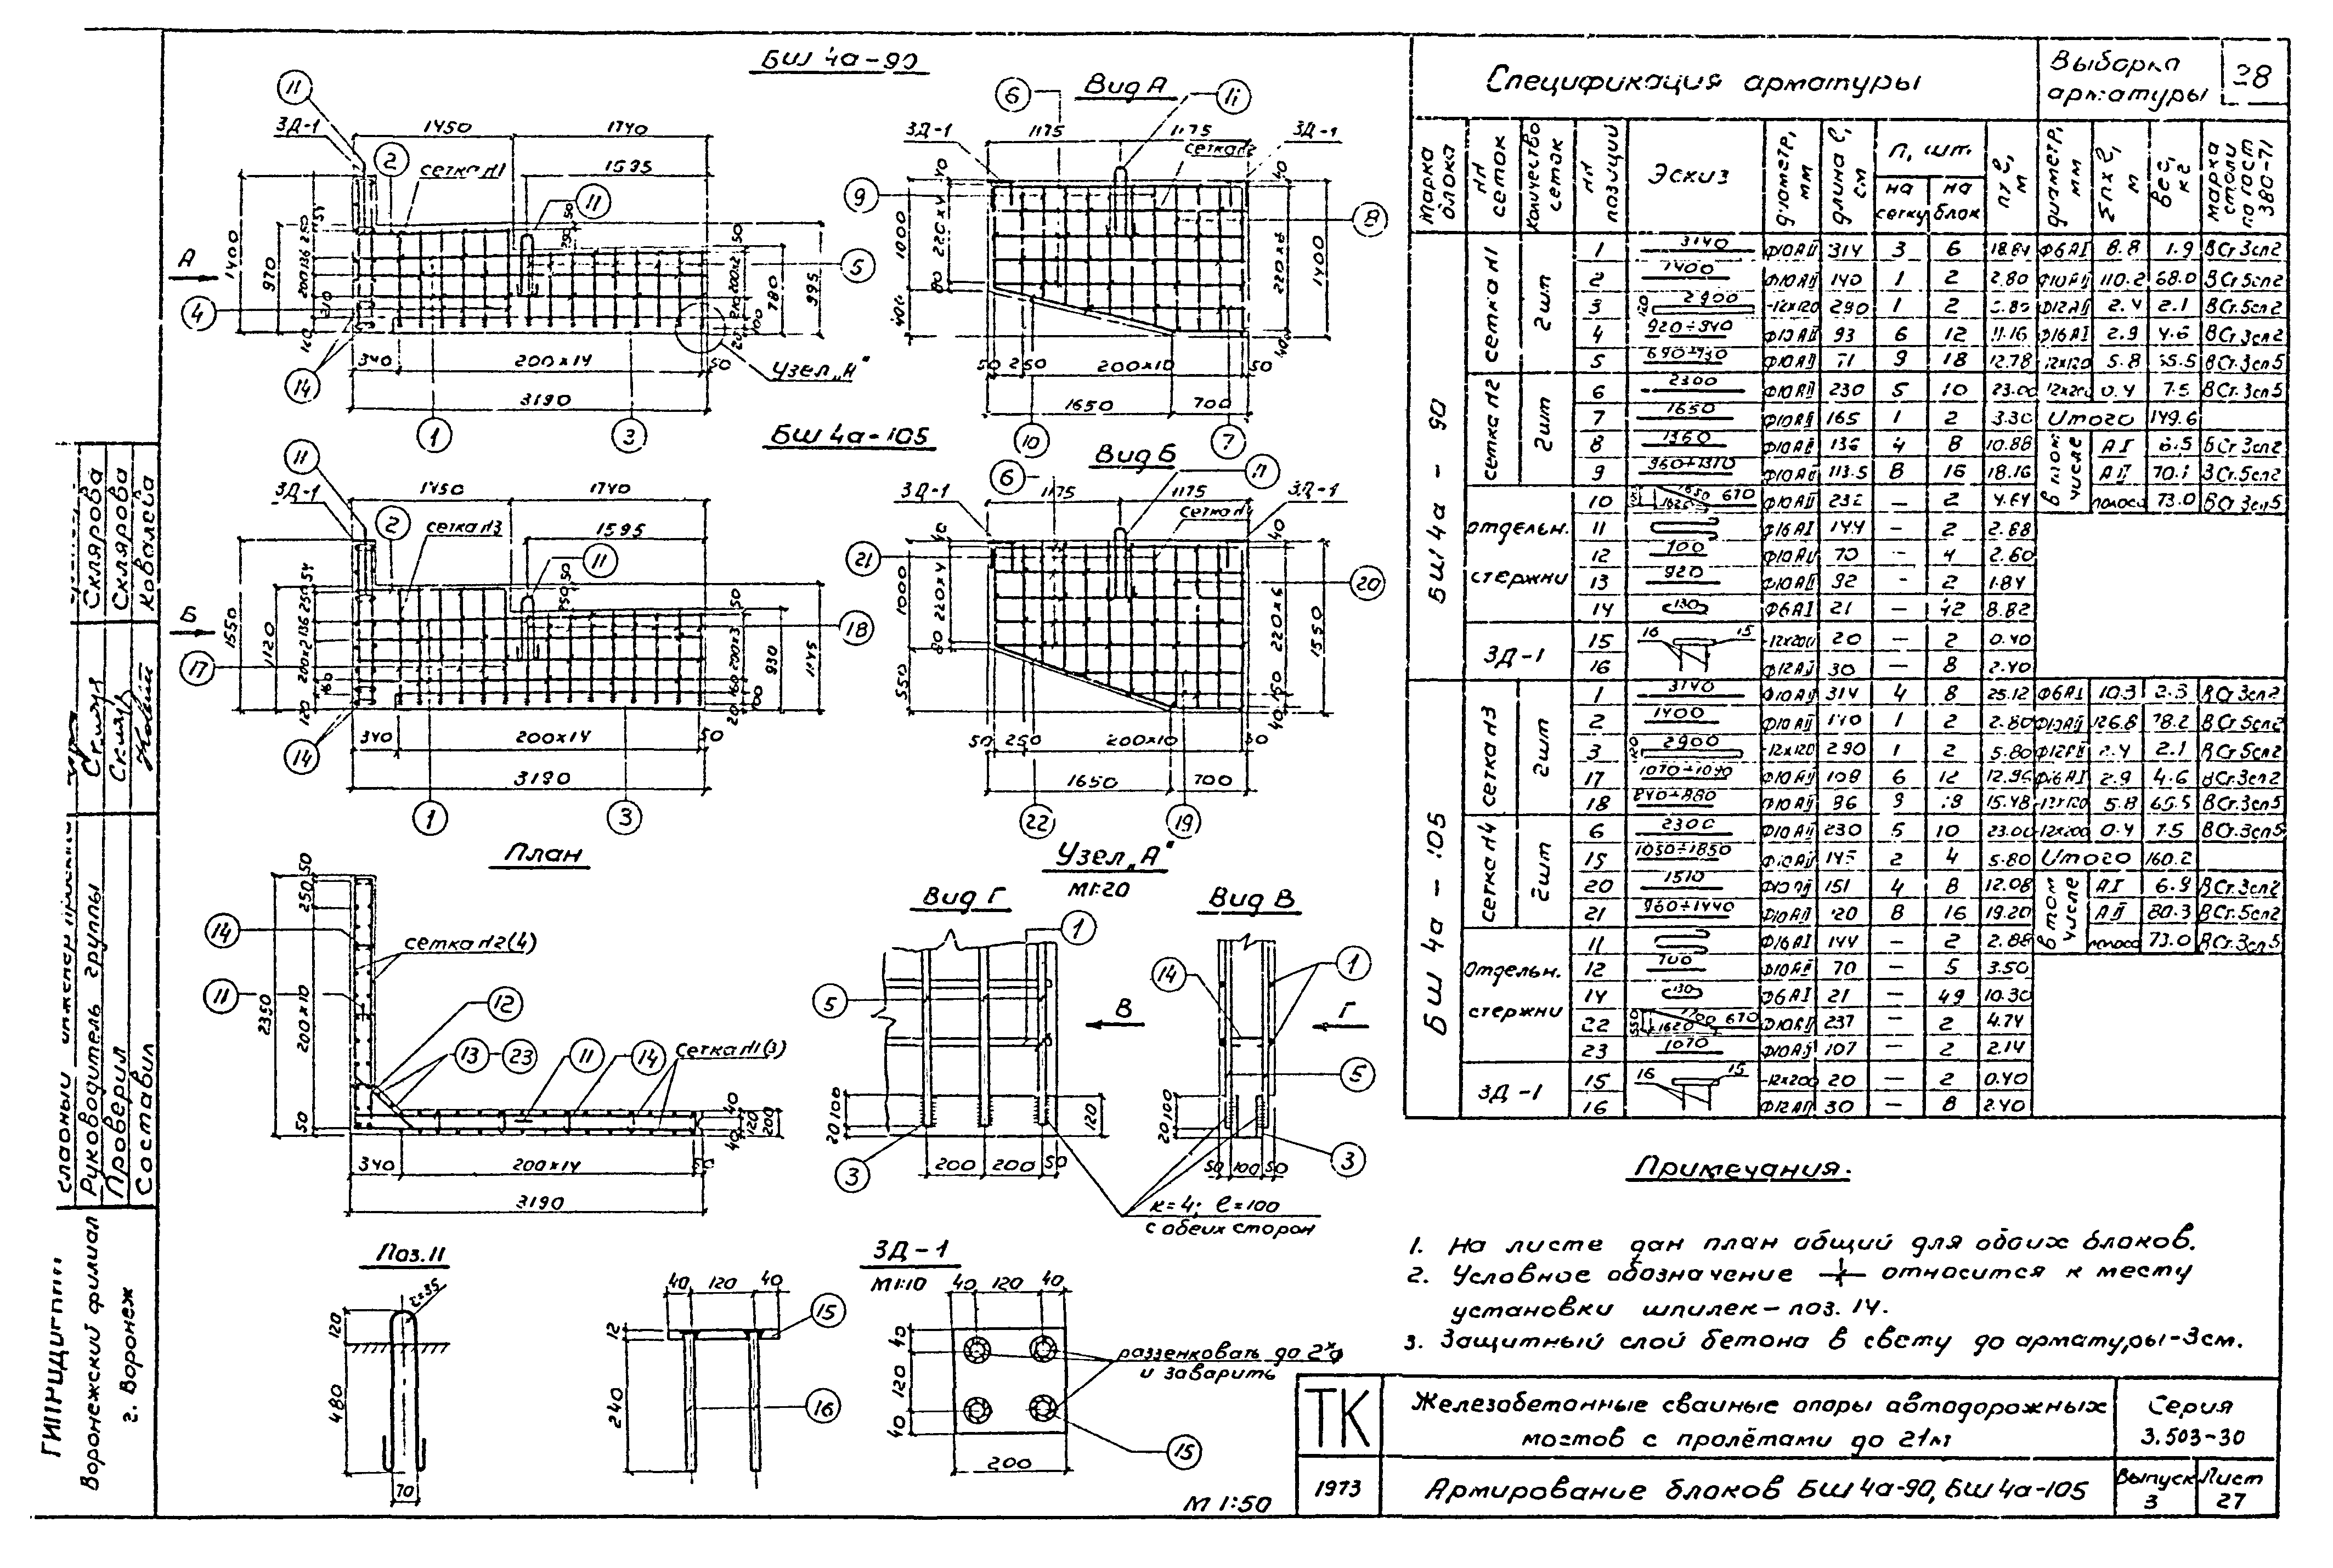 БШ 4а-90
11
3Д-1
1450
1740
2
сетка н1
1595
11
А
1400
970
5
4
780
995
340
200х14
50
Узел „А“
14
3190
1
3
Вид А
6
11
3Д-1
1175
1175
3Д-1
9
8
1000
220х4
80
220х6
1400
40
50
250
200х10
50
1650
700
10
7
БШ 4а-105
11
3Д-1
1450
1740
2
сетка н3
1595
11
Б
1550
1120
18
17
930
1145
340
200х14
50
14
3190
1
3
Вид Б
6
11
3Д-1
1175
1175
3Д-1
21
20
1000
220х4
80
550
220х6
1550
50
250
200х10
1650
700
22
19
План
2350
250
50
200х10
50
14
сетка н2(4)
11
12
13
23
11
14
Сетка н1(3)
40
120
200
40
340
200х14
50
3190
Узел „А“
М1:20
Вид Г
1
5
В
20
100
120
3
200
200
50
Вид В
14
1
Г
5
20
100
3
50
100
50
к=4; ℓ=100
с обеих сторон
Поз. 11
r=35
120
480
70
3Д-1
М1:10
40
120
40
12
240
15
16
40
120
40
40
120
40
раззенковать до 2хd
и заварить
15
200
М 1:50
Спецификация арматуры
Выборка арматуры
28
Марка блока
нн сеток
Количество сеток
нн позиции
Эскиз
диаметр, мм
длина ℓ, см
п, шт.
на сетку
на блок
пℓ, м
диаметр, мм
Σпхℓ, м
вес, кг
марка стали по гост 380-71
БШ 4а - 90
сетка н1
2шт
1 3140 Ф10АII 314 3 6 18.84 Ф6АI 8.8 1.9 ВСт.3сп2
2 1400 Ф10АII 140 1 2 2.80 Ф10АII 110.2 68.0 ВСт.5сп2
3 120 2900 -12х120 290 1 2 5.80 Ф12АII 2.4 2.1 ВСт.5сп2
4 920÷940 Ф10АII 93 6 12 11.16 Ф16АI 2.9 4.6 ВСт.3сп2
5 690÷730 Ф10АII 71 9 18 12.78 -12х120 5.8 65.5 ВСт.3сп5
сетка н2
2шт
6 2300 Ф10АII 230 5 10 23.00 -12х200 0.4 7.5 ВСт.3сп5
7 1650 Ф10АII 165 1 2 3.30 Итого 149.6
8 1360 Ф10АII 136 4 8 10.88 в том числе АI 6.5 ВСт.3сп2
9 960÷1310 Ф10АII 113.5 8 16 18.16 АII 70.1 ВСт.5сп2
отдельн. стержни
10 1650 670 Ф10АII 232 — 2 4.64 полоса 73.0 ВСт.3сп5
11 Ф16АI 144 — 2 2.88
12 700 Ф10АII 70 — 4 2.80
13 920 Ф10АII 92 — 2 1.84
14 130 Ф6АI 21 — 42 8.82
3Д-1
15 16 15 -12х200 20 — 2 0.40
16 Ф12АII 30 — 8 2.40
БШ 4а - 105
сетка н3
2шт
1 3140 Ф10АII 314 4 8 25.12 Ф6АI 10.3 2.3 ВСт.3сп2
2 1400 Ф10АII 140 1 2 2.80 Ф10АII 126.8 78.2 ВСт.5сп2
3 120 2900 -12х120 290 1 2 5.80 Ф12АII 2.4 2.1 ВСт.5сп2
17 1070÷1090 Ф10АII 108 6 12 12.96 Ф16АI 2.9 4.6 ВСт.3сп2
18 840÷880 Ф10АII 86 9 18 15.48 -12х120 5.8 65.5 ВСт.3сп5
сетка н4
2шт
6 2300 Ф10АII 230 5 10 23.00 -12х200 0.4 7.5 ВСт.3сп5
15 1050÷1850 Ф10АII 145 2 4 5.80 Итого 160.2
20 1510 Ф10АII 151 4 8 12.08 в том числе АI 6.9 ВСт.3сп2
21 960÷1440 Ф10АII 120 8 16 19.20 АII 80.3 ВСт.5сп2
Отдельн. стержни
11 Ф16АI 144 — 2 2.88 полоса 73.0 ВСт.3сп5
12 700 Ф10АII 70 — 5 3.50
14 130 Ф6АI 21 — 49 10.30
22 550 1700 670 1620 Ф10АII 237 — 2 4.74
23 1070 Ф10АII 107 — 2 2.14
3Д-1
15 16 15 -12х200 20 — 2 0.40
16 Ф12АII 30 — 8 2.40
Примечания.
1. На листе дан план общий для обоих блоков.
2. Условное обозначение относится к месту
установки шпилек - поз. 14.
3. Защитный слой бетона в свету до арматуры - 3см.
ТК
1973
Железобетонные свайные опоры автодорожных
мостов с пролётами до 21м
Серия
3.503-30
Армирование блоков БШ 4а-90, БШ 4а-105
Выпуск
3
Лист
27
Руководитель группы
Проверил
Составил
Склярова
Склярова
Ковалева
Воронежский филиал
г. Воронеж